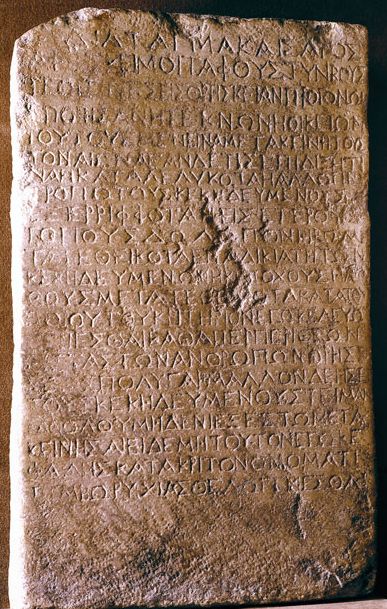 ΔΙΑΤΑΓΜΑ ΚΑΙΣΑΡΟΣ
ΜΟΙ ΤΑΦΟΥΣ ΤΥΝΒΟΥΣ
ΕΙΣ ΘΡΗΣΚΕΙΑΝ ΠΡΟΓΟΝΩΝ
ΕΠΟΙΗΣΑΝ Η ΤΕΚΝΩΝ Η ΟΙΚΕΙΩΝ
ΤΟΥΤΟΥΣ ΜΕΝΕΙΝ ΑΜΕΤΑΚΕΙΝΗΤΟΥΣ
ΤΟΝ ΑΙΩΝΑ ΕΑΝ ΔΕ ΤΙΣ ΕΠΙΔΙΞΗ ΤΙ
ΝΑ Η ΚΑΤΑΛΕΛΥΚΟΤΑ Η ΑΛΛΩ ΤΙΝΙ
ΤΡΟΠΩ ΤΟΥΣ ΚΕΚΗΔΕΥΜΕΝΟΥΣ
ΕΞΕΡΡΙΦΦΟΤΑ Η ΕΙΣ ΕΤΕΡΟΥΣ
ΤΟΠΟΥΣ ΔΩΛΩ ΠΟΝΗΡΩ ΜΕ
ΤΑΤΕΘΕΙΚΟΤΑ ΕΠ ΑΔΙΚΙΑ ΤΗ ΤΩΝ
ΚΕΚΗΔΕΥΜΕΝΩΝ Η ΚΑΤΟΧΟΥΣ Η ΛΙ
ΘΟΥΣ ΜΕΤΑΤΕΘΕΙΚΟΤΑ ΚΑΤΑ ΤΟΥ
ΤΟΙΟΥΤΟΥ ΚΡΙΤΗΡΙΟΝ ΕΓΩ ΚΕΛΕΥΩ
ΓΕΝΕΣΘΑΙ ΚΑΘΑΠΕΡ ΠΕΡΙ ΘΕΩΝ
ΤΑΣ ΤΩΝ ΑΝΘΡΩΠΩΝ ΘΡΗΣ
ΚΙΑΣ ΠΟΛΥ ΓΑΡ ΜΑΛΛΟΝ ΔΕΗΣΕΙ
ΤΟΥΣ ΚΕΚΗΔΕΥΜΕΝΟΥΣ ΤΕΙΜΑΝ
ΚΑΘΟΛΟΥ ΜΗΔΕΝΙ ΕΞΕΣΤΩ ΜΕΤΑ
ΚΕΙΝΗΣΑΙ ΕΙ ΔΕ ΜΗ ΤΟΥΤΟΝ ΕΓΩ ΚΕ
ΦΑΛΗΣ ΚΑΤΑΚΡΙΤΟΝ ΟΝΟΜΑΤΙ
ΤΥΜΒΩΡΥΧΙΑΣ ΘΕΛΩ ΓΕΝΕΣΘΑΙ